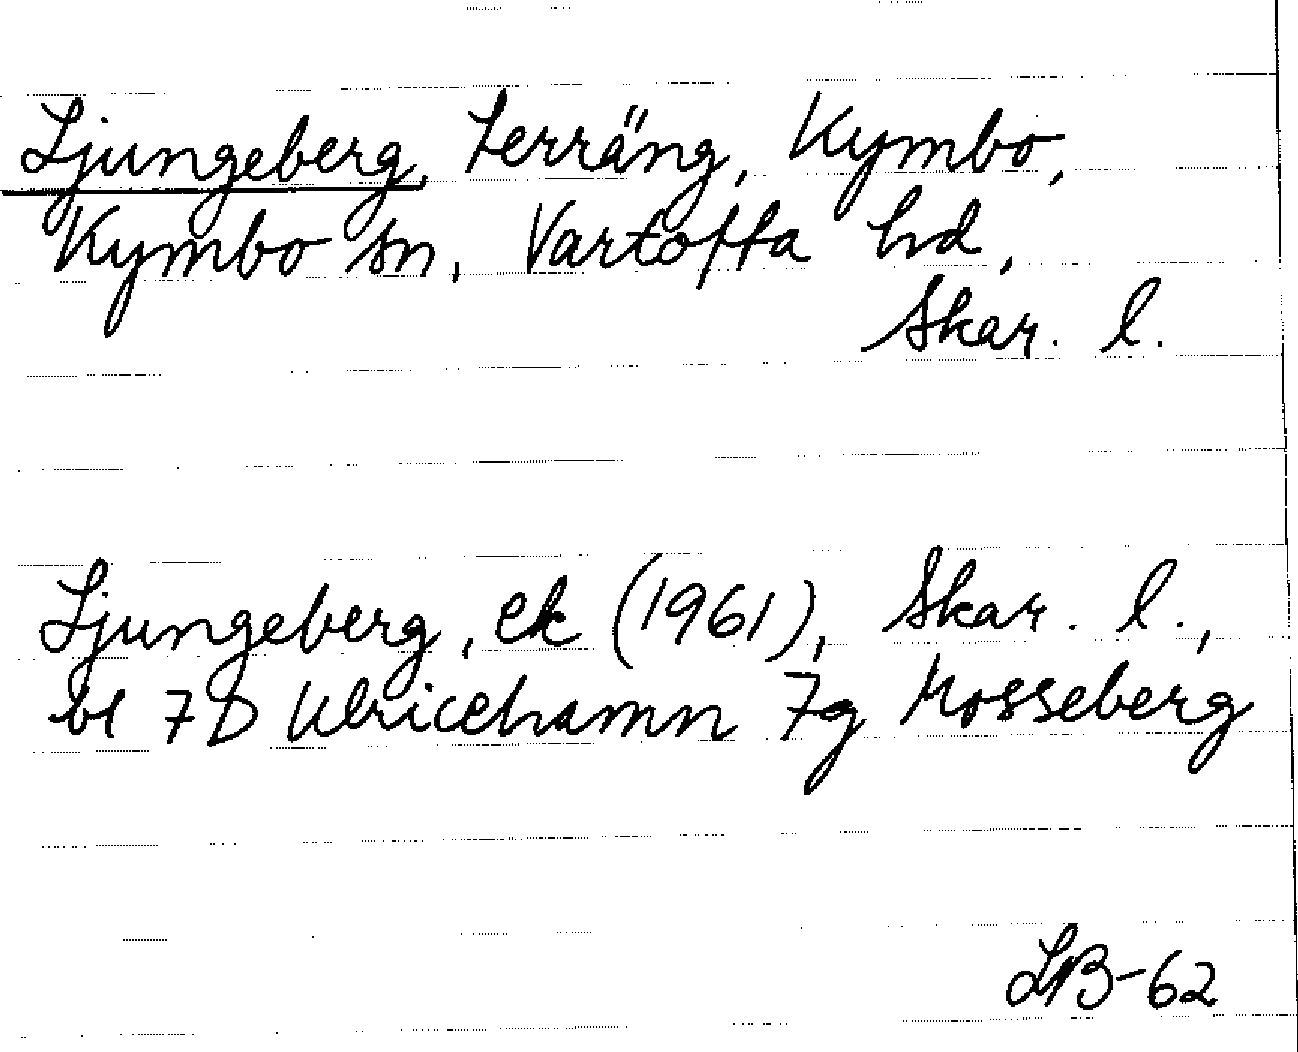 Ljungeberg, terräng, Kymbo,
Kymbo sn, Vartofta hd,
Skar. l.
Ljungeberg, ek (1961), Skar. l.,
bl 7D Ulricehamn 7g Mosseberg
LB-62